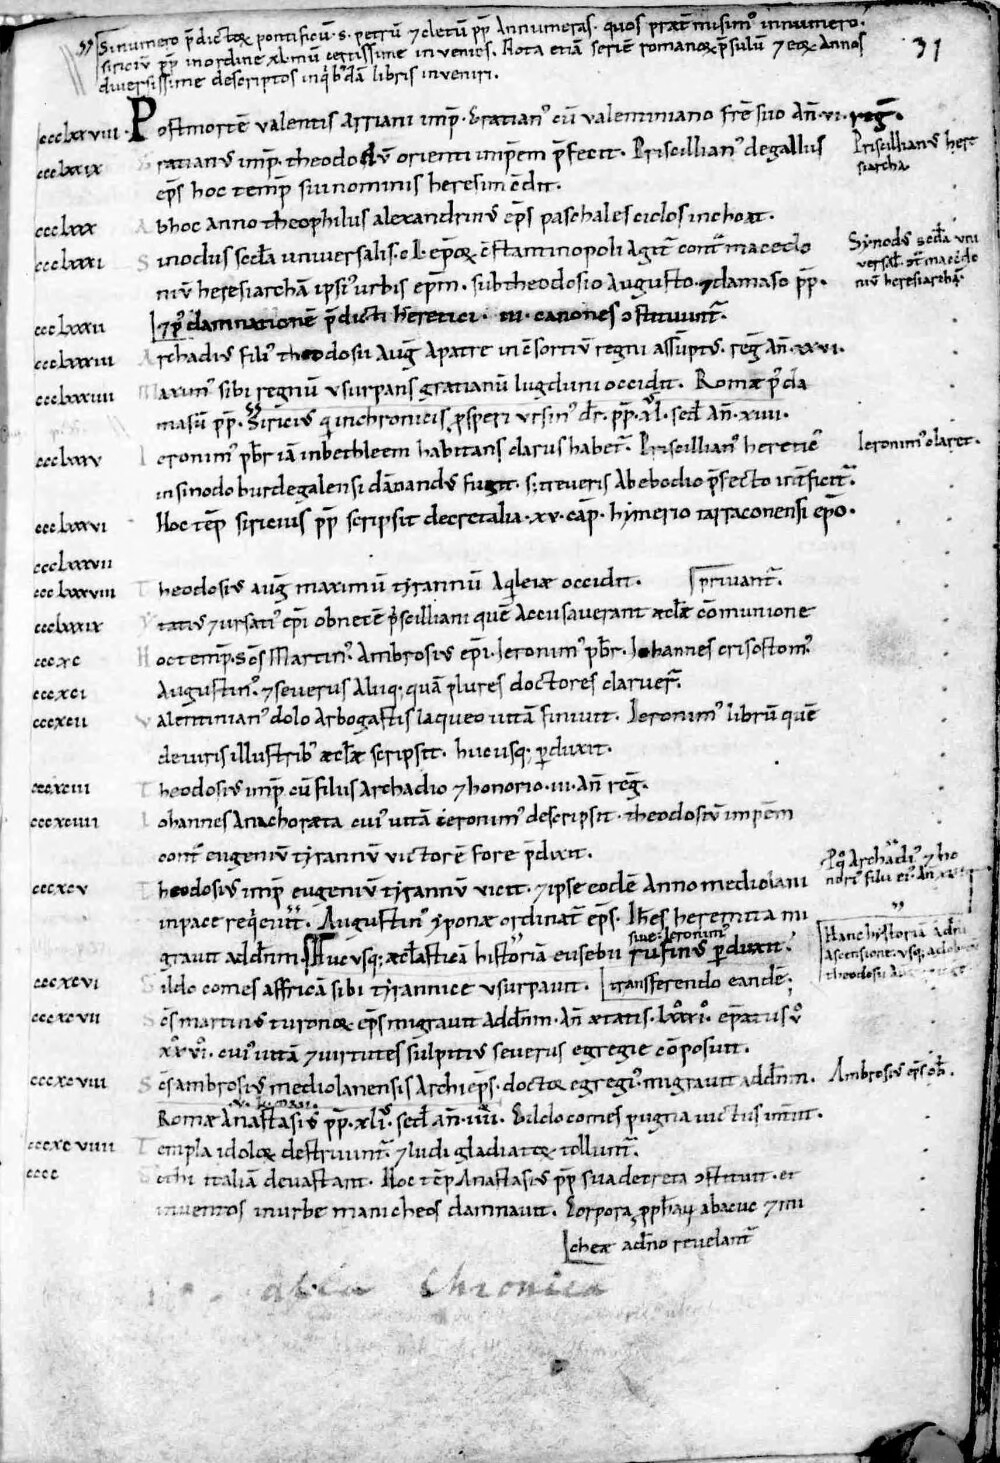 Si numero p̄dictoꝝ pontificū ·s· petrū ⁊ cletū pp̄ annumeras, quos p̄t̄misimꝰ in numero,
siriciū pp̄ in ordine xlmū certissime invenies. Nota etiā seriē romanoꝝ p̄sulū ⁊ eoꝝ annos
diversissime descriptos in qͥbꝰdā libris inveniri.
31
ccclxxviii · Post mortē valentis arriani imp̄· Gratianꝰ cū valentiniano fr̄e suo an̄· vi · reḡ.
ccclxxix Gratianꝰ imp̄· theodosiū orienti imp̄em p̄fecit. Priscillianꝰ de gallus
Priscillianꝰ here
siarcha
ep̄s hoc temp̄ sui nominis heresim c̄dit.
ccclxxx Ab hoc anno theophilus alexandrinꝰ ep̄s paschales ciclos inchoat.
ccclxxxi Sinodus scd̄a universalis · cl· ep̄oꝝ c̄stantinopoli agit̄ cont̄ macedo
Synodꝰ scd̄a uni
versal̄ ꝯt̄ macedo
niū heresiarchā
niū heresiarchā ipsiꝰ urbis ep̄m· sub theodosio augusto · ⁊ damaso pp̄·
ccclxxxii ⁊ pꝰ damnationē p̄dicti heretici · iii · canones ꝯstituunt̄.
ccclxxxiii Archadiꝰ filiꝰ theodosii auḡ a patre in c̄sortiū regni assūptꝰ· reḡ an̄ · xxvi·
ccclxxxiiii Maximꝰ sibi regnū usurpans gratianū lugduni occidit. Romæ pꝰ da
masū pp̄· Siriciꝰ qͥ in chronicis ꝓsperi ursinꝰ dr̄· pp̄· xl· sed̄ an̄· xiiii·
ccclxxxv Ieronimꝰ pb̄r iā in bethleem habitans clarus habet̄. Priscillianꝰ hereticꝰ
Ieronimꝰ claret.
in sinodo burdegalensi dānandꝰ fugit· s; treveris ab ebodio p̄fecto int̄ficit̄.
ccclxxxvi Hoc tēp̄ siricius pp̄ scripsit decretalia · xv· cāp· hymerio tarraconensi ep̄o·
ccclxxxvii
ccclxxxviii Theodosiꝰ auḡ maximū tyrannū aqͥleiæ occidit. privant̄.
ccclxxxix Itatiꝰ ⁊ ursatiꝰ ep̄i ob necē p̄scilliani quē accusaverant æcl̄æ cōmunione
cccxc Hoc temp̄· sc̄s Martinꝰ· Ambrosiꝰ ep̄i· Ieronimꝰ pb̄r· Iohannes crisostomꝰ·
cccxci Augustinꝰ· ⁊ severus aliiq; quā plures doctores claruer̄.
cccxcii Valentinianꝰ dolo arbogastis laqueo vitā finivit. Ieronimꝰ librū quē
de viris illustribꝰ æcl̄æ scripsit· huc usq; ꝑduxit.
cccxciii Theodosiꝰ imp̄ cū filiis archadio ⁊ honorio · iii· an̄ reḡ.
cccxciiii Iohannes anachoræta cuiꝰ vitā ieronimꝰ descripsit· theodosiū imp̄em
cont̄ eugeniū tyrannū victorē fore p̄dixit.
cccxcv Theodosiꝰ imp̄ eugeniū tyrannū vicit· ⁊ ipse eodē anno mediolani
Pꝰ q̊ Archadiꝰ ⁊ ho
noriꝰ filii eiꝰ an̄
in pace reqͥevit. Augustinꝰ yponæ ordinat̄ ep̄s. Ioh̄es heremita mi
gravit ad dn̄m. Huc usq; æcl̄asticā historiā eusebii rufinꝰ ꝑduxit·
sive ieronimꝰ
Hanc historiā a dn̄i
ascensione usq; ad obitū
theodosii
cccxcvi Gildo comes affricā sibi tyrannice usurpavit. transferendo eandē;
cccxcvii Sc̄s martinꝰ turonoꝝ ep̄s migravit ad dn̄m· an̄ ætatis· lxxxi· ep̄atus ꝰ
xxvi· cuiꝰ vitā ⁊ virtutes sulpitiꝰ severus egregie cōposuit.
cccxcviii Sc̄s ambrosiꝰ mediolanensis archiep̄s· doctoꝝ egregiꝰ migravit ad dn̄m. Ambrosiꝰ ep̄s ob̄.
Romæ anastasiꝰ pp̄· xli· sed̄ an̄· iiii· Gildo comes pugna victus int̄iit.
cccxcviiii Templa idoloꝝ destruunt̄ ⁊ ludi gladiatoꝝ tollunt̄.
cccc Gothi italiā devastant. Hoc tēp̄ anastasiꝰ pp̄ sua decreta ꝯstituit· et
inventos in urbe manicheos damnavit. Corpora ꝓph̄aꝝ abacuc ⁊ mi
cheæ a dn̄o revelant̄
alia Chronica